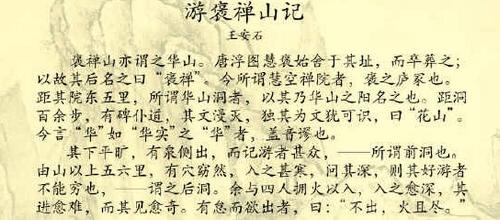 游褒禅山记
王安石
褒禅山亦谓之华山。唐浮图慧褒始舍于其址，而卒葬之；
以故其后名之曰“褒禅”。今所谓慧空禅院者，褒之庐冢也。
距其院东五里，所谓华山洞者，以其乃华山之阳名之也。距洞
百余步，有碑仆道，其文漫灭，独其为文犹可识，曰“花山”。
今言“华”如“华实”之“华”者，盖音谬也。
其下平旷，有泉侧出，而记游者甚众，——所谓前洞也。
由山以上五六里，有穴窈然，入之甚寒，问其深，则其好游者
不能穷也，——谓之后洞。余与四人拥火以入，入之愈深，其
进愈难，而其见愈奇。有怠而欲出者，曰：“不出，火且尽。”